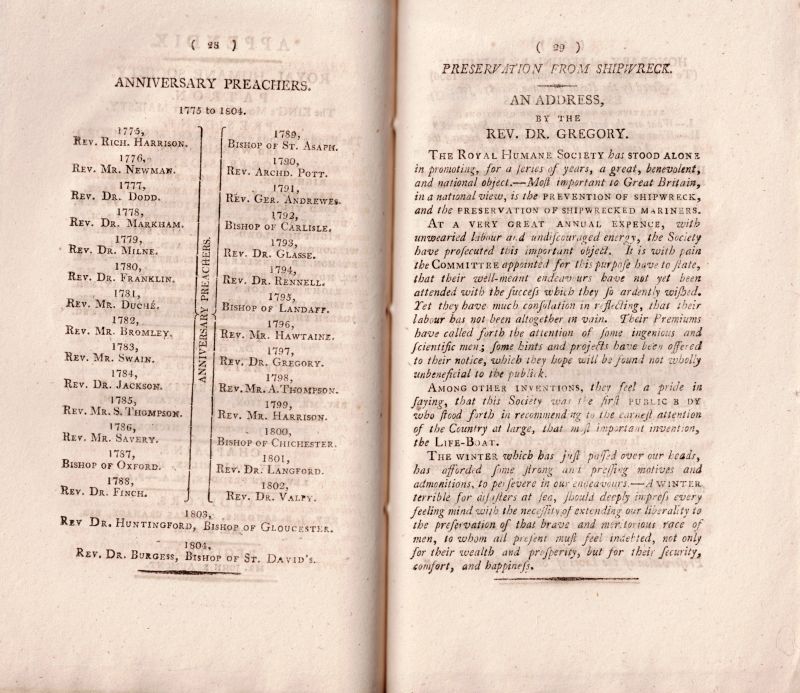 ( 28 )
ANNIVERSARY PREACHERS.
1775 to 1804.
1775,
REV. RICH. HARRISON.
1776,
REV. MR. NEWMAN.
1777,
REV. DR. DODD.
1778,
REV. DR. MARKHAM.
1779,
REV. DR. MILNE.
1780,
REV. DR. FRANKLIN.
1781,
REV. MR. DUCHÉ.
1782,
REV. MR. BROMLEY.
1783,
REV. MR. SWAIN.
1784,
REV. DR. JACKSON.
1785,
REV. MR. S. THOMPSON.
1786,
REV. MR. SAVERY.
1787,
BISHOP OF OXFORD.
1788,
REV. DR. FINCH.
ANNIVERSARY PREACHERS.
1789,
BISHOP OF ST. ASAPH.
1790,
REV. ARCHD. POTT.
1791,
REV. GER. ANDREWES.
1792,
BISHOP OF CARLISLE.
1793,
REV. DR. GLASSE.
1794,
REV. DR. RENNELL.
1795,
BISHOP OF LANDAFF.
1796,
REV. MR. HAWTAINE.
1797,
REV. DR. GREGORY.
1798,
REV. MR. A. THOMPSON.
1799,
REV. MR. HARRISON.
1800,
BISHOP OF CHICHESTER.
1801,
REV. DR. LANGFORD.
1802,
REV. DR. VALPY.
1803,
REV DR. HUNTINGFORD, BISHOP OF GLOUCESTER.
1804,
REV. DR. BURGESS, BISHOP OF ST. DAVID'S.
( 29 )
PRESERVATION FROM SHIPWRECK.
AN ADDRESS,
BY THE
REV. DR. GREGORY.
THE ROYAL HUMANE SOCIETY has STOOD ALONE
in promoting, for a ſeries of years, a great, benevolent,
and national object.—Moſt important to Great Britain,
in a national view, is the PREVENTION OF SHIPWRECK,
and the PRESERVATION OF SHIPWRECKED MARINERS.
AT A VERY GREAT ANNUAL EXPENCE, with
unwearied labour and undiſcouraged energy, the Society
have proſecuted this important object. It is with pain
the COMMITTEE appointed for this purpoſe have to ſtate,
that their well-meant endeavours have not yet been
attended with the ſucceſs which they ſo ardently wiſhed.
Yet they have much conſolation in reflecting, that their
labour has not been altogether in vain. Their Premiums
have called forth the attention of ſome ingenious and
ſcientific men; ſome hints and projects have been offered
to their notice, which they hope will be found not wholly
unbeneficial to the publick.
AMONG OTHER INVENTIONS, they feel a pride in
ſaying, that this Society was the firſt PUBLIC B DY
who ſtood forth in recommend ng to the earneſt attention
of the Country at large, that moſt important invention,
the LIFE-BOAT.
THE WINTER which has juſt paſſed over our heads,
has afforded ſome ſtrong and preſſing motives and
admonitions, to perſevere in our endeavours.—A WINTER
terrible for diſaſters at ſea, ſhould deeply impreſs every
feeling mind with the neceſſity of extending our liberality to
the preſervation of that brave and meritorious race of
men, to whom all preſent muſt feel indebted, not only
for their wealth and proſperity, but for their ſecurity,
comfort, and happineſs.